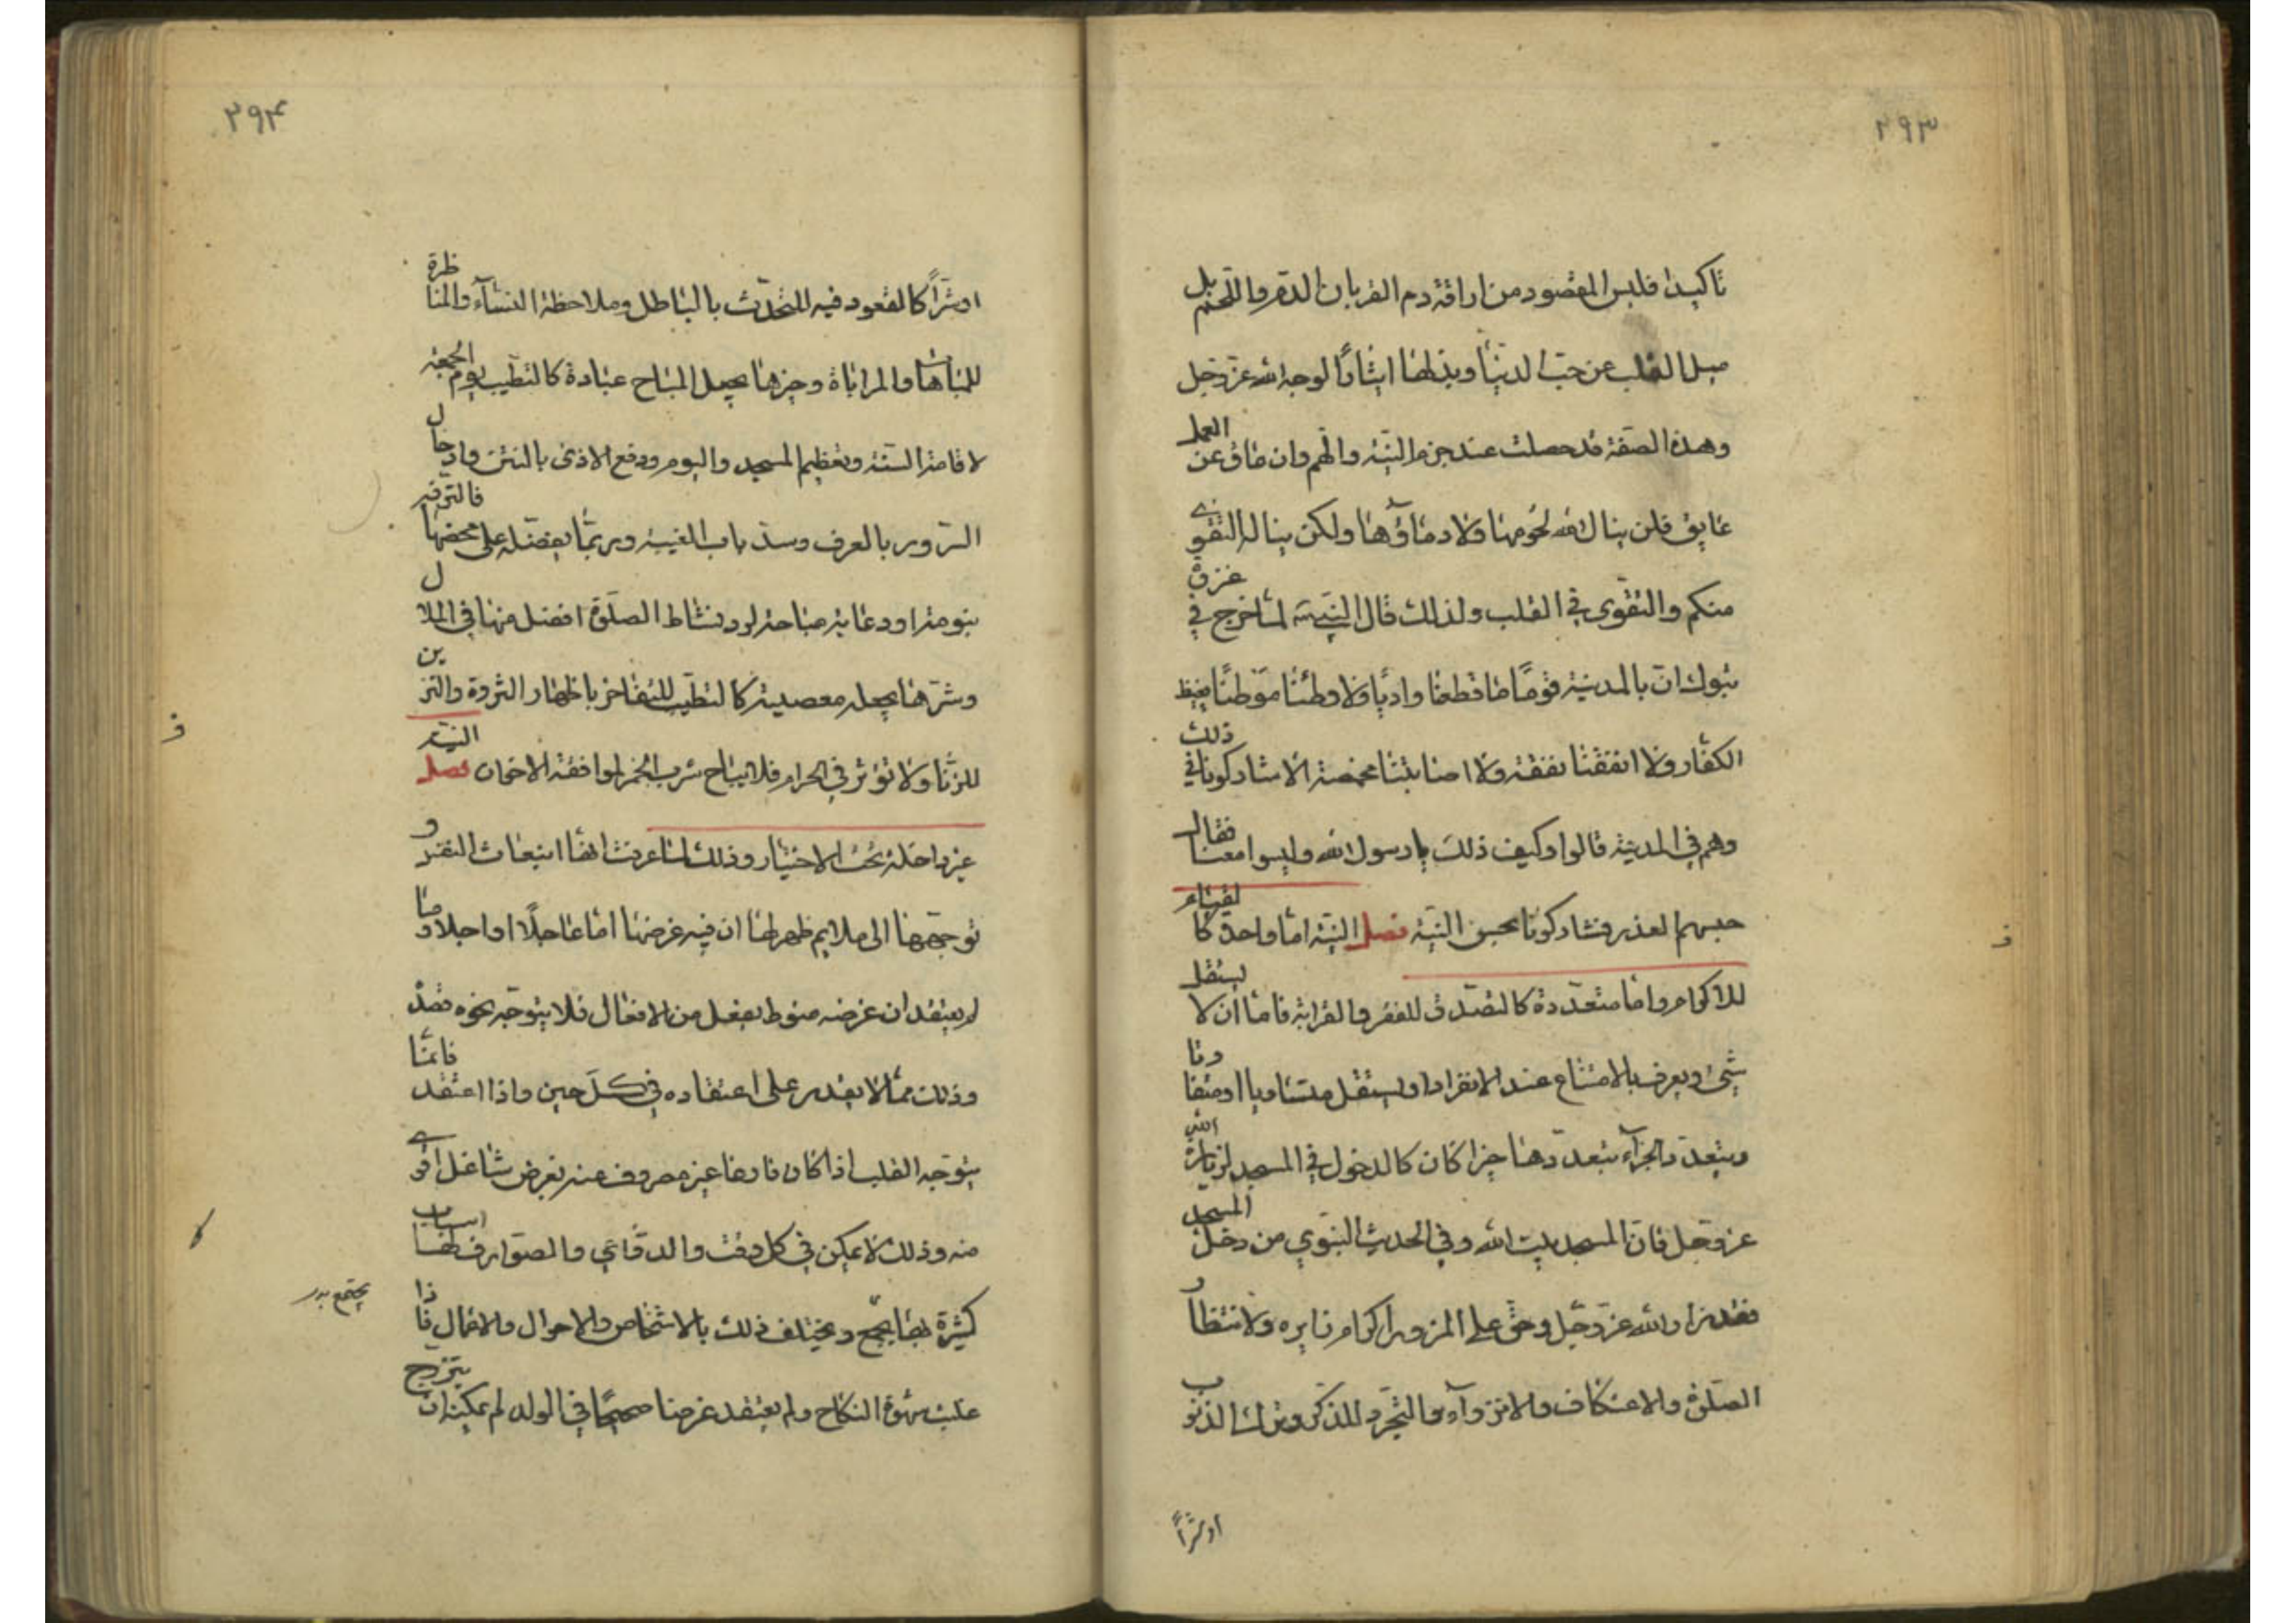 ٢٩٣
تاكيدا فليس المقصود من اراقة دم القربان الدم واللحم بل
ميل القلب عن حب الدنيا وبذلها ايثارًا لوجه الله عز وجل
وهذه الصفة قد حصلت عند جزم النية والهم وان عاق عن العمل
عايق فلن ينال الله لحومها ولا دماؤها ولكن يناله التقوى
منكم والتقوى في القلب ولذلك قال النبي ص لما خرج في غزوة
تبوك ان بالمدينة قومًا ما قطعنا واديًا ولا وطئنا موطئًا يغيظ
الكفار ولا انفقنا نفقة ولا اصابتنا مخمصة الا شاركونا في ذلك
وهم في المدينة قالوا وكيف ذلك يا رسول الله وليسوا معنا فقال
حبسهم العذر فشاركونا بحسن النية فصل النية اما واحدة كالقيام
للاكرام واما متعددة كالتصدق للفقر والقرابة فاما ان لا يستقل
شيء ويعرف بالامتناع عند الانفراد او يستقل متساويا او متفاوتا
ويتعدد الجزاء بتعددها خيرا كان كالدخول في المسجد لزيارة الله
عز وجل فان المسجد بيت الله وفي الحديث النبوي من دخل المسجد
فقد زار الله عز وجل وحق على المزور اكرام زايره ولانتظار
الصلوة والاعتكاف والانزواء والتجرد للذكر وترك الذنوب
او شرًا
٢٩۴
او شرًا كالقعود فيه للتحدث بالباطل وملاحظة النساء والمناظرة
للمباهات والمراياة وخيرها يجعل المباح عبادة كالتطيب يوم الجمعة
لاقامة السنة وتعظيم المسجد واليوم ودفع الاذى بالنتن وادخال
السرور بالعرف وسد باب الغيبة وربما يفضله على محضها فالترفيه
بنومة او دعابة مباحة لرد نشاط الصلوة افضل منها في الملال
وشرها يجعله معصية كالتطيب للتفاخر باظهار الثروة والتزين
للزنا ولا تؤثر في الحرام فلا يباح شرب الخمر لموافقة الاخوان فصل النية
غير داخلة تحت الاختيار وذلك لما عرفت انها انبعاث النفس و
توجهها الى ملايم ظهر لها ان فيه غرضها اما عاجلًا او اجلا وما
لم يعتقد ان غرضه منوط بفعل من الافعال فلا يتوجه نحوه قصده
وذلك مما لا يقدر على اعتقاده في كل حين واذا اعتقد فانما
يتوجه القلب اذا كان فارغا غير مصروف عنه بغرض شاغل اقوى
منه وذلك لا يمكن في كل وقت والدواعي والصوارف لها اسباب
كثيرة بها يجتمع ويختلف ذلك بالاشخاص والاحوال والاعمال فاذا
غلبت شهوة النكاح ولم يعتقد غرضا صحيحًا في الولد لم يمكنه ان يتزوج